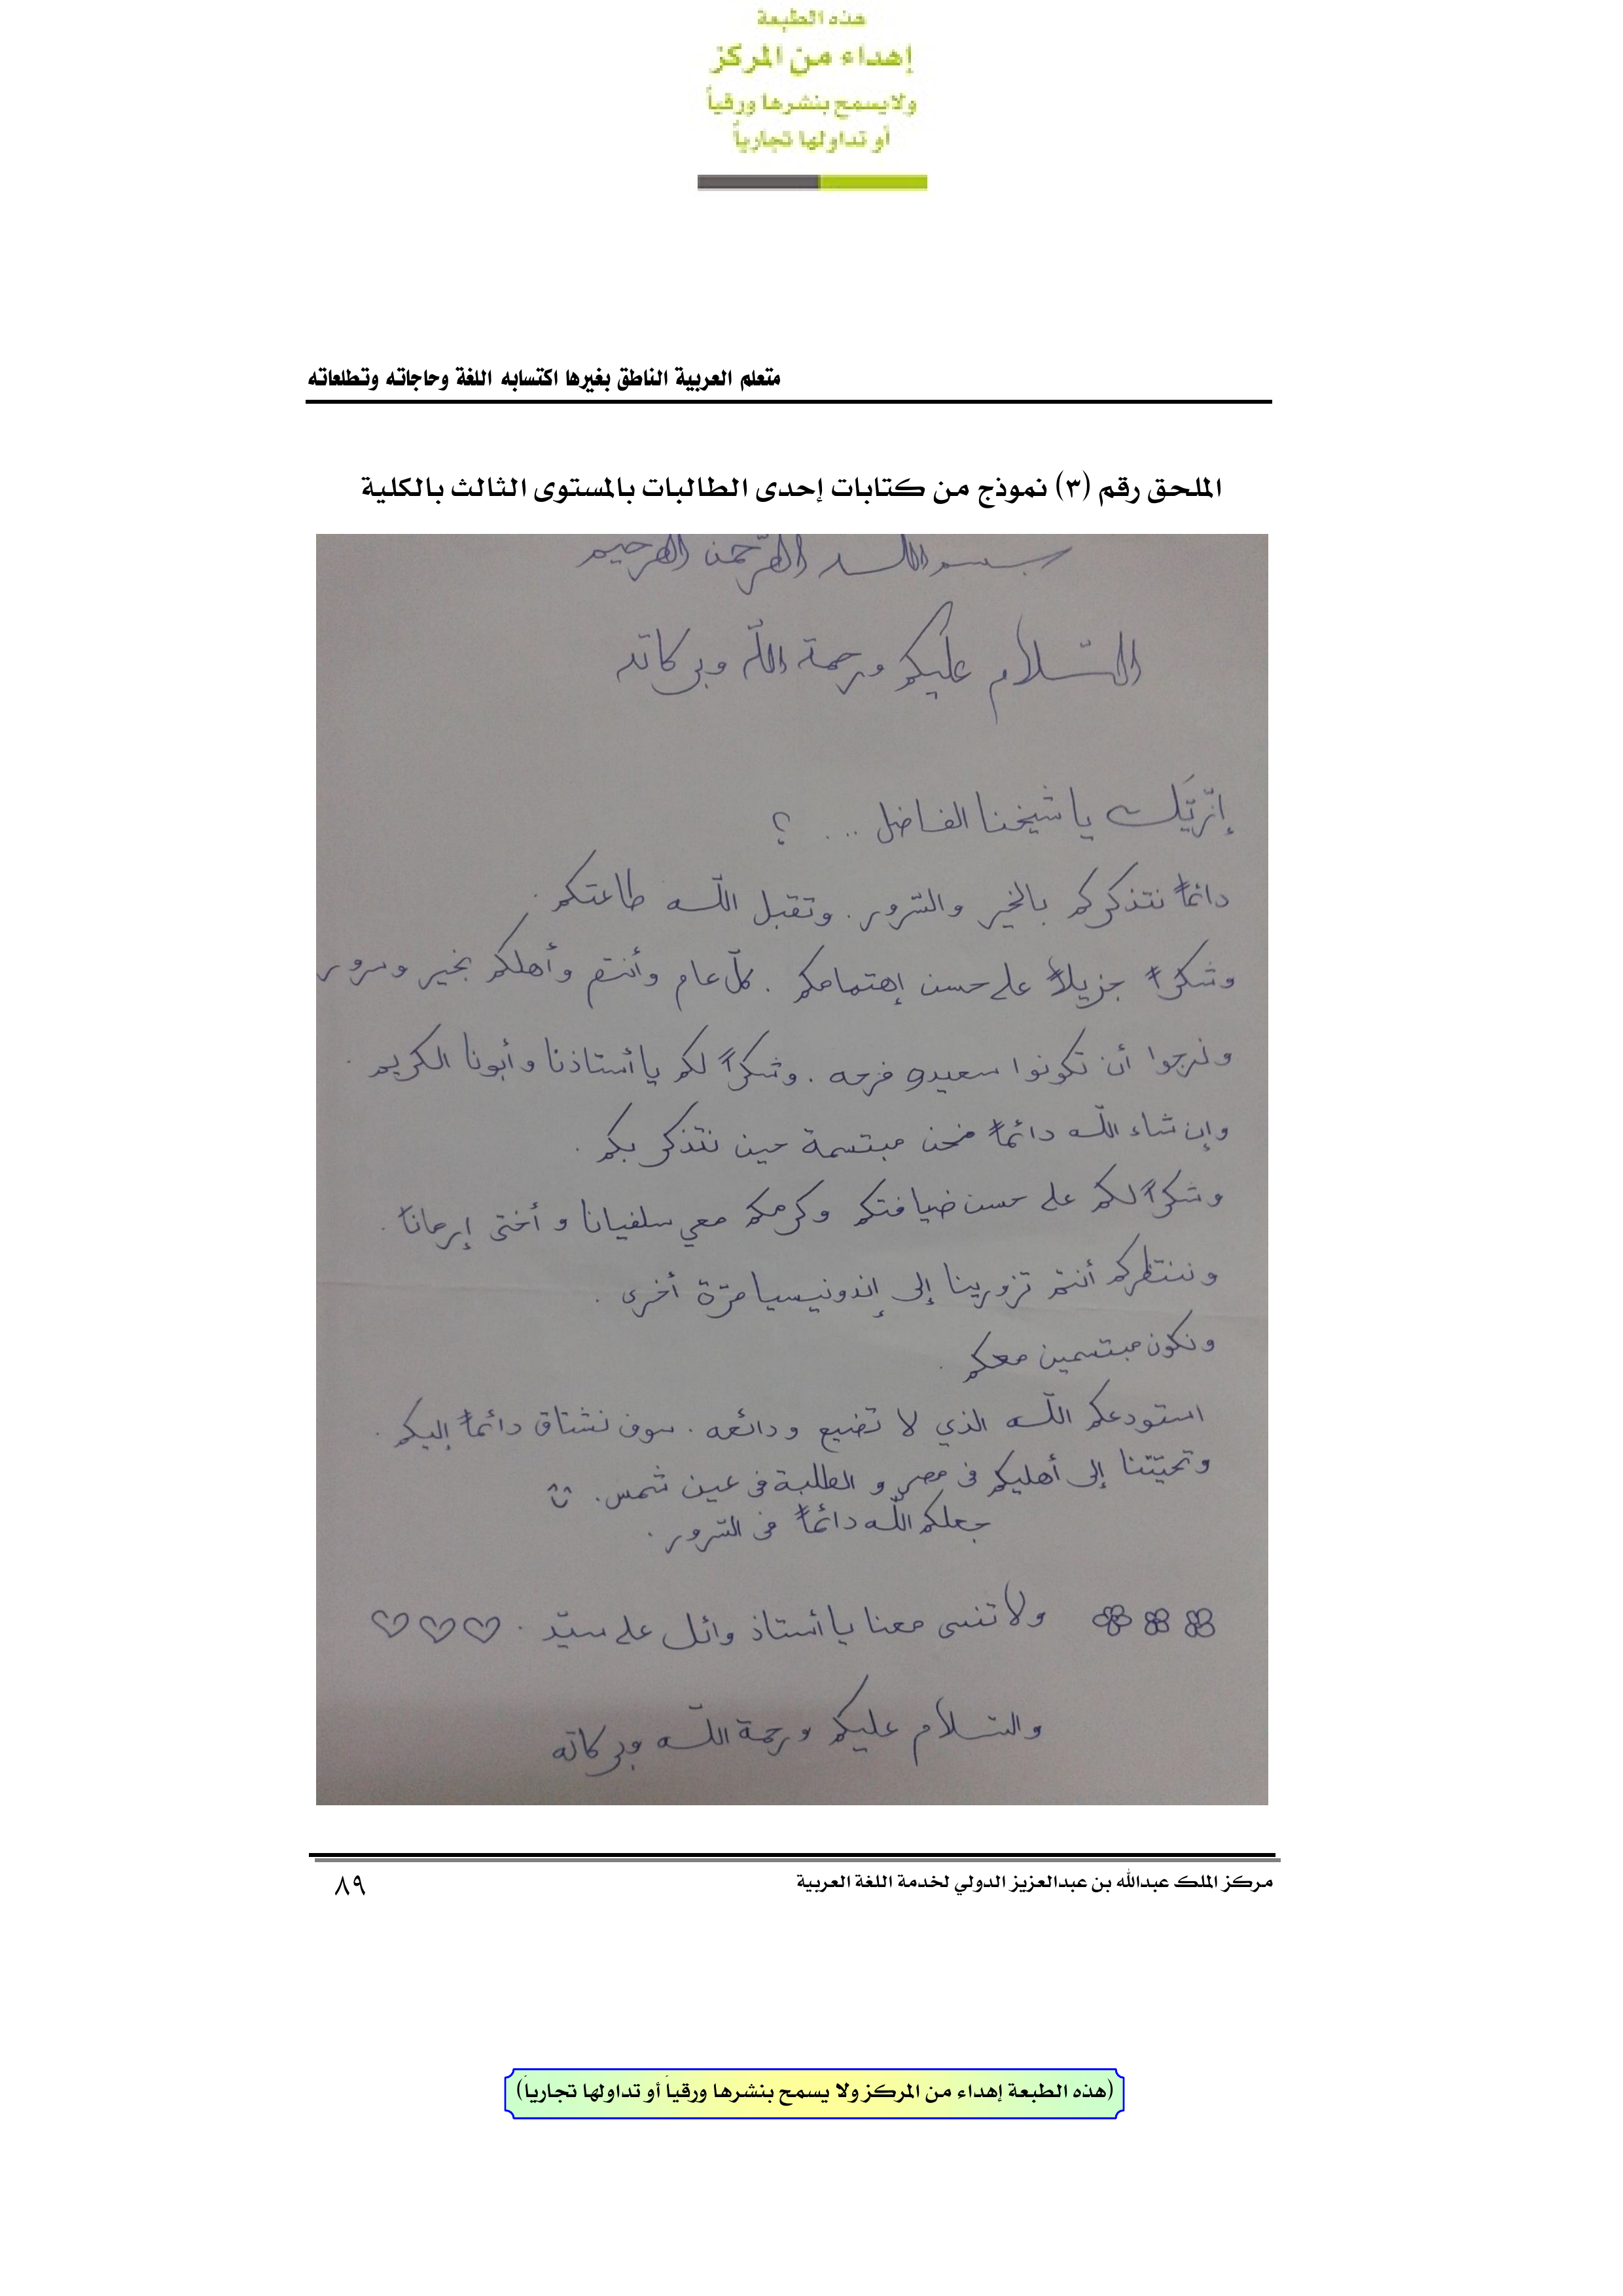 هذه الطبعة
إهداء من المركز
ولايسمح بنشرها ورقياً
أو تداولها تجارياً
متعلم العربية الناطق بغيرها اكتسابه اللغة وحاجاته وتطلعاته
الملحق رقم (٣) نموذج من كتابات إحدى الطالبات بالمستوى الثالث بالكلية
بسم الله الرّحمن الرحيم
السّلام عليكم ورحمة الله وبركاته
إزّيّك يا شيخنا الفاضل ... ؟
دائماً نتذكركم بالخير والسّرور. وتقبل اللّه طاعتكم.
وشكراً جزيلاً على حسن إهتمامكم. كلّ عام وأنتم وأهلكم بخير وسرور
ونرجوا أن تكونوا سعيده فرحه. وشكراً لكم يا أستاذنا وأبونا الكريم.
وإن شاء اللّه دائماً نحن مبتسمة حين نتذكر بكم.
وشكراً لكم على حسن ضيافتكم وكرمكم معي سلفيانا وأختى إيرمانا.
وننتظركم أنتم تزورينا إلى إندونيسيا مرّة أخرى.
ونكون مبتسمين معكم.
استودعكم اللّه الذي لا تضيع ودائعه. سوف نشتاق دائماً إليكم.
وتحيّتنا إلى أهليكم فى مصر و الطلبة فى عين شمس.
جعلكم اللّه دائماً فى السّرور.
ولا تنسى معنا يا أستاذ وائل على سيّد.
والسّلام عليكم ورحمة اللّه وبركاته
مركز الملك عبدالله بن عبدالعزيز الدولي لخدمة اللغة العربية
٨٩
(هذه الطبعة إهداء من المركز ولا يسمح بنشرها ورقياً أو تداولها تجارياً)